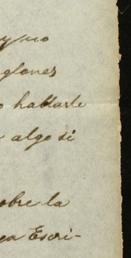 glones
o hablarle
algo di
obre la
ea Escri-